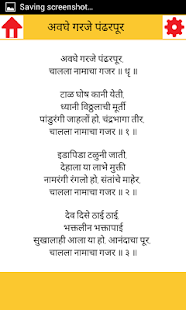 Saving screenshot...
अवघे गरजे पंढरपूर
अवघे गरजे पंढरपूर,
चालला नामाचा गजर ॥ धृ ॥
टाळ घोष कानी येती,
ध्यानी विठ्ठलाची मूर्ती
पांडुरंगी जाहलो हो, चंद्रभागा तीर,
चालला नामाचा गजर ॥ १ ॥
इडापिडा टळुनी जाती,
देहाला या लाभे मुक्ती
नामरंगी रंगलो हो, संतांचे माहेर,
चालला नामाचा गजर ॥ २ ॥
देव दिसे ठाई ठाई,
भक्तलीन भक्तापाई
सुखालाही आला या हो, आनंदाचा पूर,
चालला नामाचा गजर ॥ ३ ॥